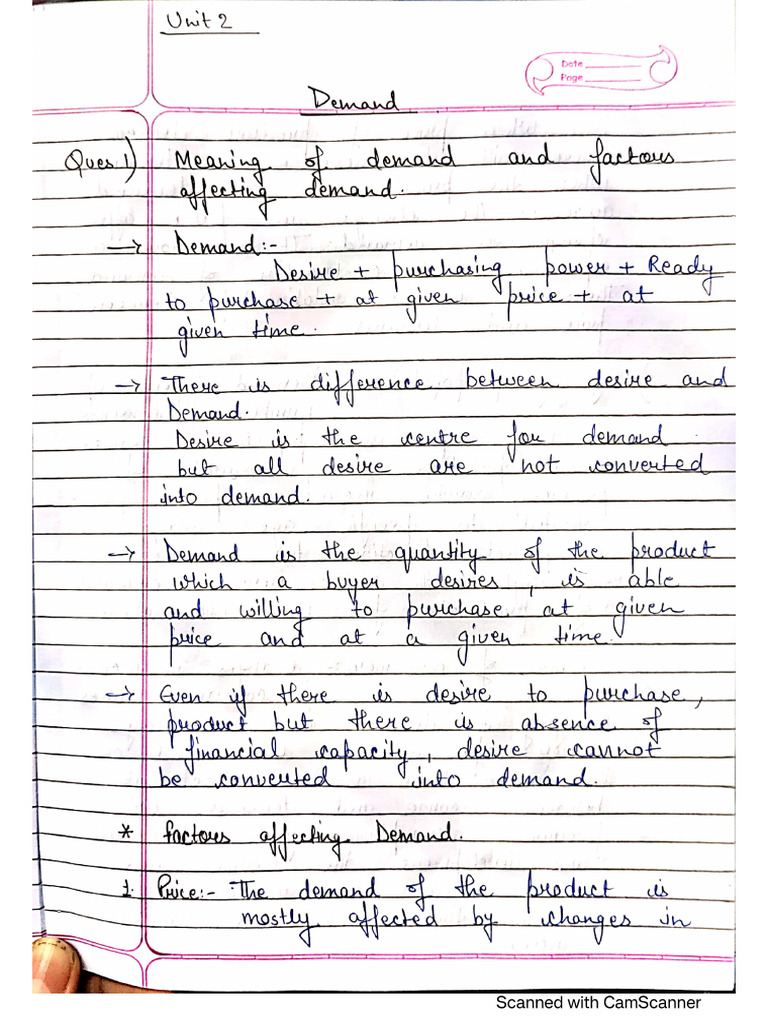 Unit 2
Date
Page
Demand
Ques 1) Meaning of demand and factors
affecting demand.
→ Demand:-
Desire + purchasing power + Ready
to purchase + at given price + at
given time.
→ There is difference between desire and
Demand.
Desire is the centre for demand
but all desire are not converted
into demand.
→ Demand is the quantity of the product
which a buyer desires, is able
and willing to purchase at given
price and at a given time.
→ Even if there is desire to purchase,
product but there is absence of
financial capacity, desire cannot
be converted into demand.
* factors affecting Demand.
1. Price:- The demand of the product is
mostly affected by changes in
Scanned with CamScanner